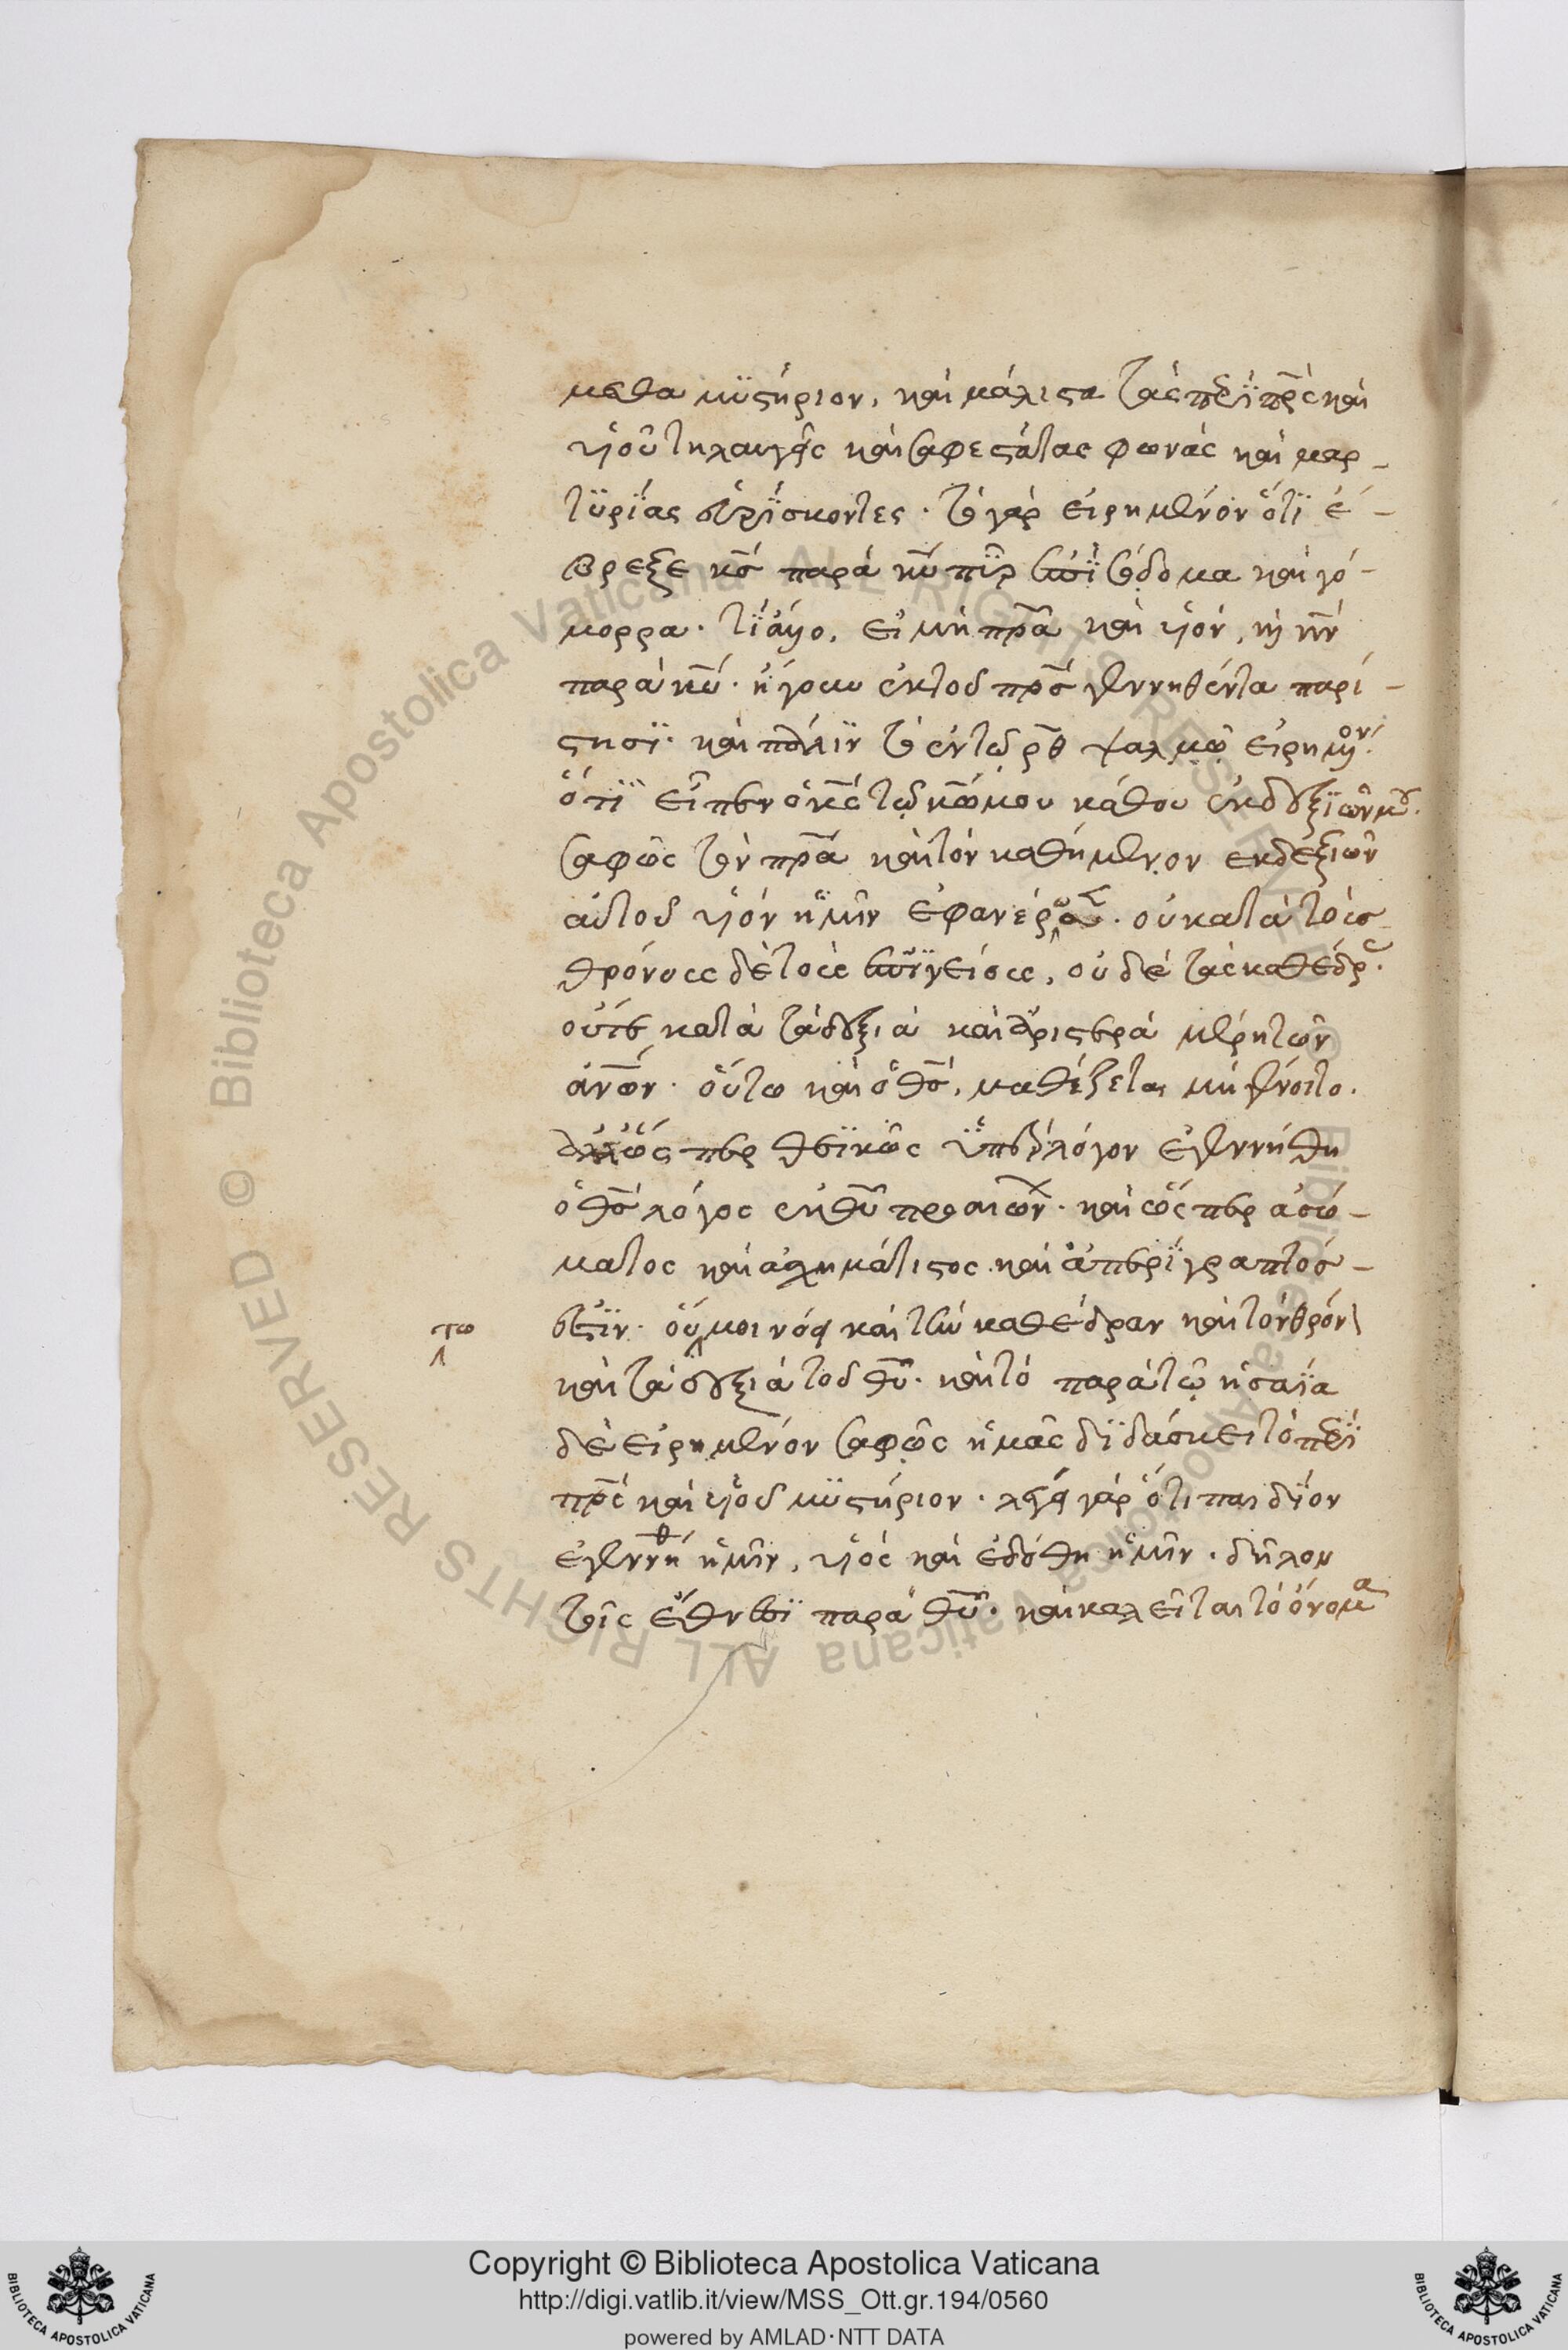 μεθα μϋστήριον, καὶ μάλιστα τὰς περῒ πρ̅ς καὶ
υἱοῦ τηλαυγεῖς καὶ σαφεστάτας φωνὰς καὶ μαρ-
τϋρΐας εὑρΐσκοντες. τὸ γὰρ εἰρημένον ὅτϊ ἔ-
βρεξε κ̅ς παρὰ κ̅υ πῦρ ἐπῒ σόδομα καὶ γό-
μορρα. τΐ ἄλλο, εἰ μὴ πρ̅α καὶ υἱὸν,
παρὰ κ̅υ. ἤγουν ἐκ τοῦ πρ̅ς γεννηθέντα παρί-
στησϊ. καὶ πάλϊν τὸ ἐν τῷ ρ̅θ ψαλμῷ εἰρημένον
ὅτϊ εἶπεν ὁ κ̅ς τῷ κ̅ω μου κάθου ἐκ δεξϊῶν μου.
σαφῶς τὸν πρ̅α καὶ τὸν καθήμενον ἐκ δεξιῶν
αὐτοῦ υἱὸν ἡμῖν ἐφανέρωσε. οὐ κατὰ τοὺσ-
θρόνους δὲ τοὺς ἐπϊγείους, οὐδὲ τὰς καθέδρας
οὔτε κατὰ τὰ δεξιὰ καὶ ἀριστερὰ μέρη τῶν
ἀν̅ων. οὕτω καὶ ὁ θ̅ς, καθέζεται μὴ γένοιτο.
ἀλλ' ὥσπερ θεϊκῶς ὑπὲρ λόγον ἐγεννήθη
ὁ θ̅ς λόγος ἐκ θ̅υ πρὸ αἰώνων. καὶ ὥσπερ ἀσώ-
ματος καὶ ἀσχημάτιστος καὶ ἀπερΐγραπτος-
ἐστϊν. οὕτω μοι νόει καὶ τὴν καθέδραν καὶ τὸν θρόν
καὶ τὰ δεξιὰ τοῦ θ̅υ. καὶ τὸ παρὰ τῷ ἡσαΐα
δὲ εἰρημένον σαφῶς ἡμᾶς δϊδάσκει τὸ περῒ
πρ̅ς καὶ υἱοῦ μϋστήριον. λέγει γὰρ ὅτι παιδΐον
ἐγεννήθη ἡμῖν, υἱὸς καὶ ἐδόθη ἡμῖν. δῆλον
τοῖς ἔθνεσϊ παρὰ θ̅υ. καὶ καλεῖται τὸ ὄνομα